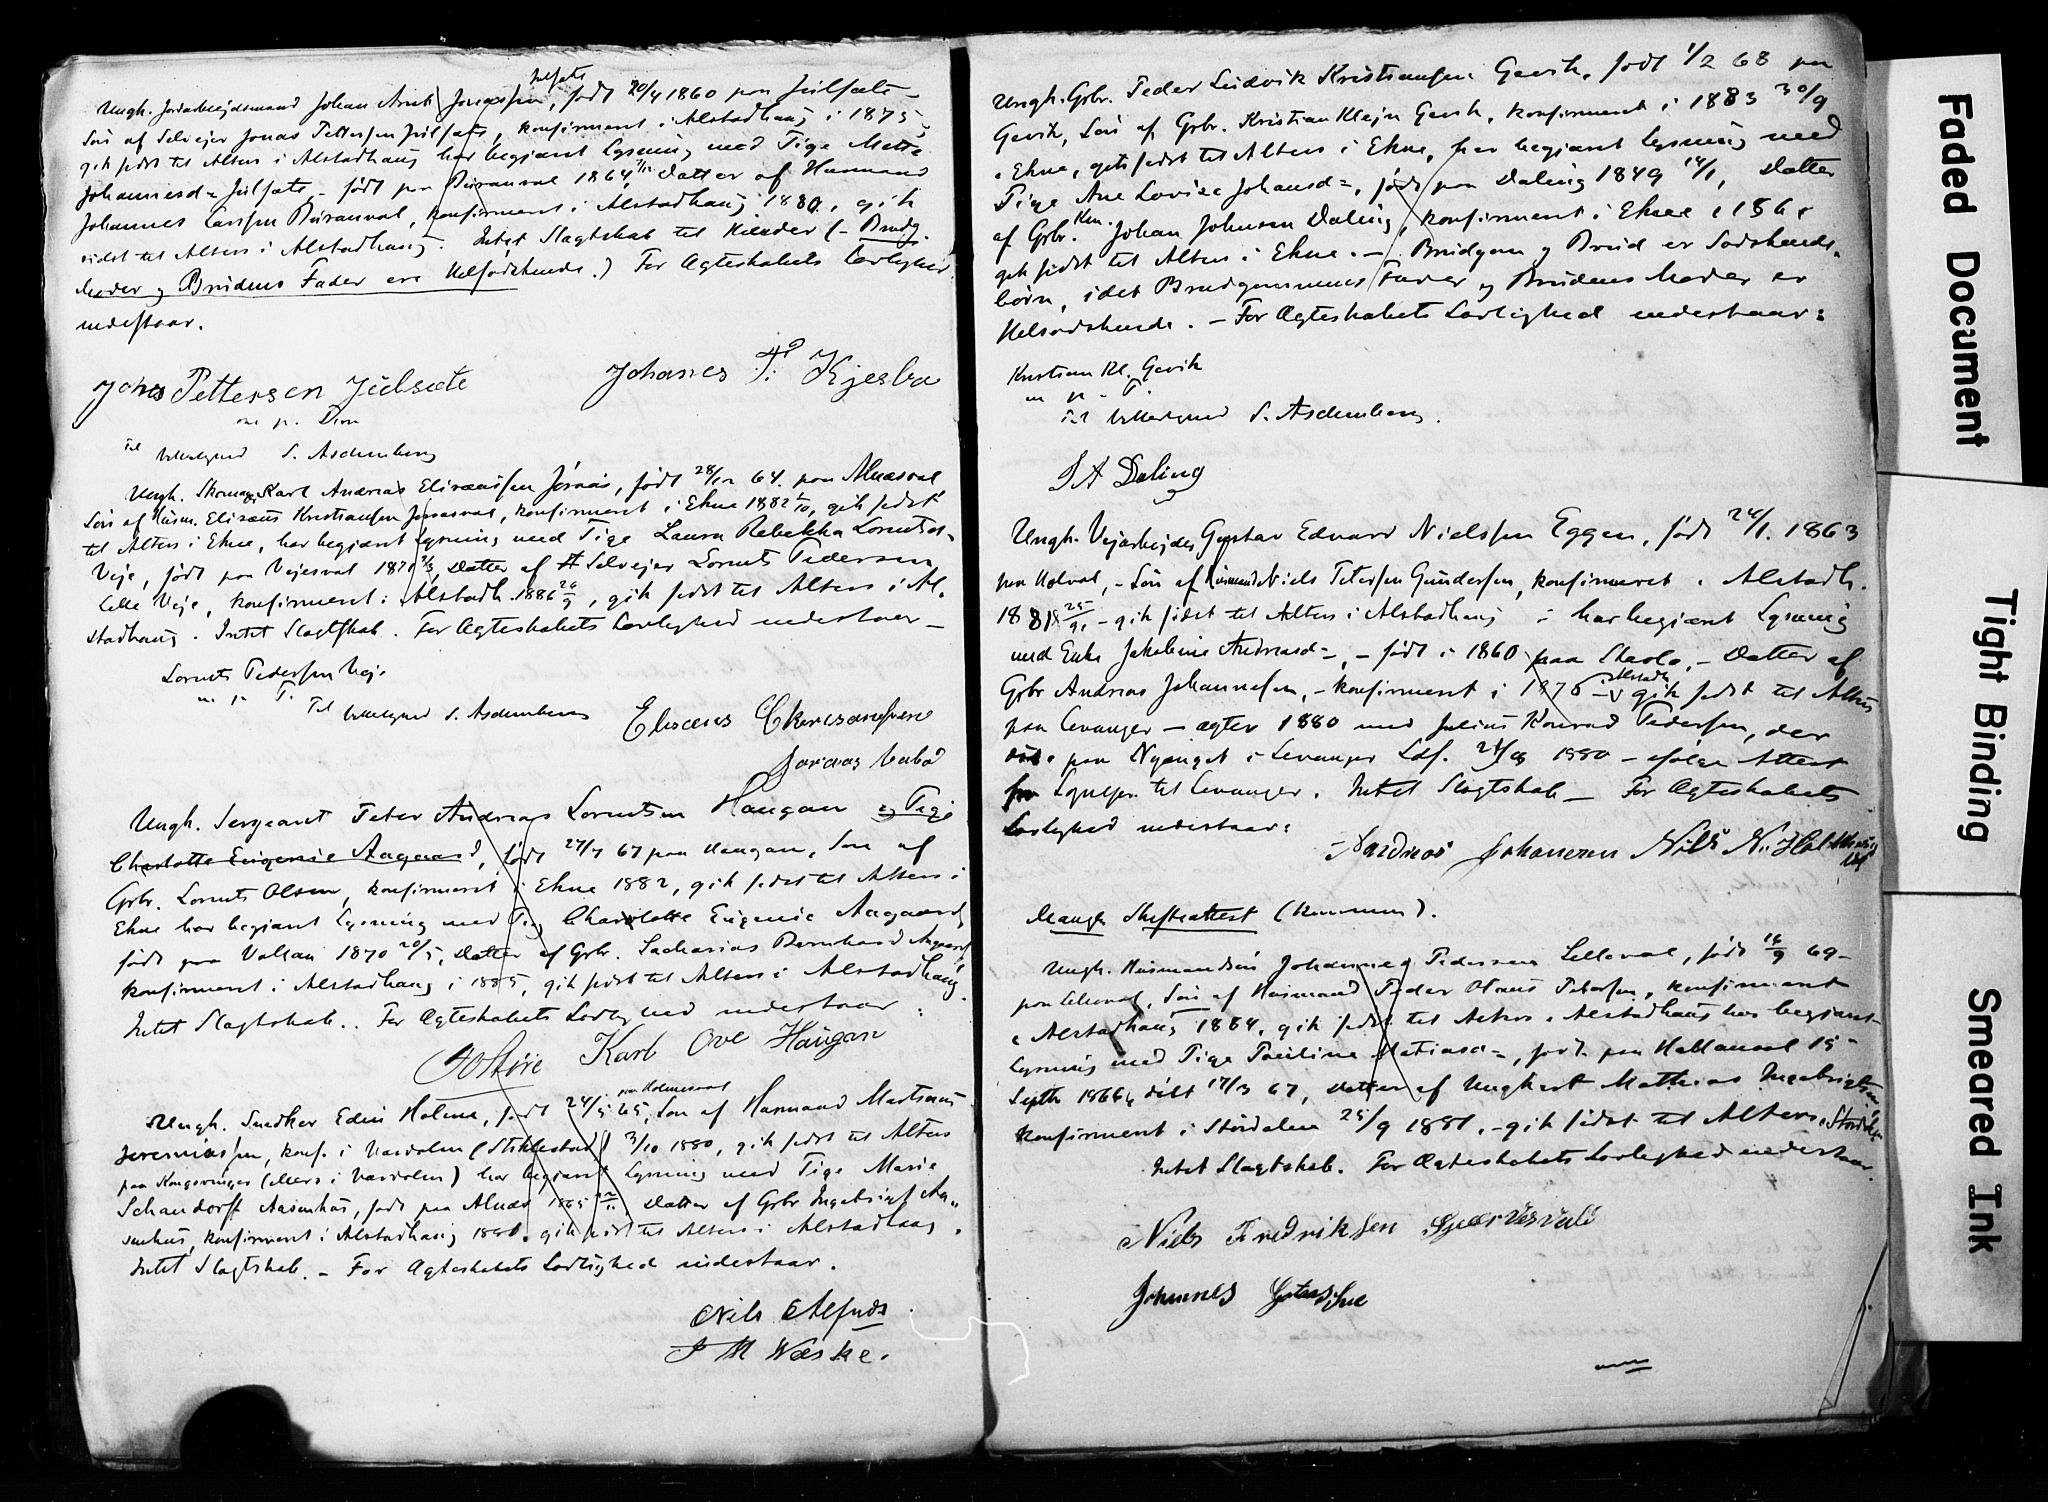 Ungk. Jordarbejdsmand Johan Arnt Jonassen, født 20/4 1860 paa Julsæt-
Julsæt
Søn af Selvejer Jonas Pettersen Julsæt, konfirmeret i Alstadhaug i 1875,
gik sidst til Alters i Alstadhaug har begjæret Lysning med Pige Mette
Johannesd= Julsæt - født paa Buranval 1864 Datter af Husmand
Johannes Larssen Buranval, konfirmeret i Alstadhaug 1880, gik
sidst til Alters i Alstadhaug. Intet Slægtskab til Hinder (- Brudg.
Moder og Brudens Fader ere Helsødskende.) For Ægteskabets Lovlighed
indestaar.
Jonas Pettersen Julsæte
Johanes P. Kjesbo
m p. Pen
Til Vitterlighed S. Aschenberg
Ungk. Skomager Karl Andreas Elisæussen Jørnæs, født 28/12 64 paa Alnæsval
Søn af Husm. Elisæus Kristiansen, konfirmeret i Ekne 1882, gik sidst
til Alters i Ekne, har begjæret Lysning med Pige Laura Rebekka Lorntsd=
Veje, født paa Vejesval 1871, Datter af Selvejer Lornts Pedersen
Lille Veje, konfirmeret i Alstadh. 1886, gik sidst til Alters i Al-
stadhaug. Intet Slægtskab. For Ægteskabets Lovlighed indestaar -
Lornts Pedersen Veje
m p. P.
Til Vitterlighed S. Aschenberg
Eliseus Chrestiansen
Ungk. Sergeant Peter Andreas Lorntsen Haugan og Pige
Charlotte Eugenie Aagaard, født 27/7 67 paa Haugan, Søn af
Grbr. Lornts Olsen, konfirmeret i Ekne 1882, gik sidst til Alters i
Ekne har begjæret Lysning med Pige Charlotte Eugenie Aagaard,
født paa Valsan 1870 20/5, Datter af Grbr. Sacharias Bernhard Aagaard
konfirmeret i Alstadhaug i 1885, gik sidst til Alters i Alstadhaug.
Intet Slægtskab. For Ægteskabets Lovlighed indestaar:
Karl Ove Haugan
Ungk. Snedker Edin Holme, født 24/5 65, Søn af Husmand Martinus
paa Holmesval
Jeremiassen, konf. i Værdalen (Stiklestad) 3/10 1880, gik sidst til Alters
paa Kongsvinger (ellers i Værdalen) har begjæret Lysning med Pige Marie
Schandorff Aasenhus, født paa Alnæs 1865 Datter af Grbr Ingebrigt Aa-
senhus, konfirmeret i Alstadhaug 1880, gik sidst til Alters i Alstadhaug.
Intet Slægtskab. - For Ægteskabets Lovlighed indestaar.
Nils Alfnæs
J M Wæske.
Ungk. Grbr. Peder Ludvik Kristiansen Gevik, født 1/2 68 paa
Gevik, Søn af Grbr. Kristian Klejn Gevik, konfirmeret i 1883 30/9
i Ekne, gik sidst til Alters i Ekne, har begjæret Lysning med
Pige Ane Lovise Johansd=, født paa Daling 1849 14/1, Datter
af Grbr. Johan Johnsen Daling, konfirmeret i Ekne i 186
gik sidst til Alters i Ekne. - Brudgom og Brud er Sødskende-
børn, idet Brudgommens Fader og Brudens Moder er
Helsødskende. - For Ægteskabets Lovlighed indestaar:
Kristian Kl. Gevik
m p. P.
Til Vitterlighed S. Aschenberg.
J A Daling
Ungk. Vejarbejder Gustav Edvard Nielssen Eggen, født 24/1. 1863
paa Holval, - Søn af Husmand Niels Petersen Gundersen, konfirmeret i Alstadh.
1881 25/9 - gik sidst til Alters i Alstadhaug - har begjæret Lysning
med Enke Jakobine Andreasd=, - født i 1860 paa, - Datter af
Grbr Andreas Johannesen, - konfirmeret i 1876 - gik sidst til Alters
i Alstadh
paa Levanger - ægtev. 1880 med Julius Konrad Pedersen, der
døde paa Nyenget i Levanger Lds. 1880 - ifølge Attest
fra Sognepr. til Levanger. Intet Slægtskab - For Ægteskabets
Lovlighed indestaar:
Andreas Johannesen
Mangler Skifteattest (kommen).
Ungk. Husmandssøn Johannes Pedersen Lilleval, født 69 -
paa Lilleval, Søn af Husmand Peder Olaus Petersen, konfirmeret
i Alstadhaug 1884, gik sidst til Alters i Alstadhaug har begjæret
Lysning med Pige Pauline Matiasd=, født paa Hallanval 15 -
Septb 1866, døbt 17/3 67, Datter af Ungkarl Mathias Ingebrigtsen,
konfirmeret i Størdalen 25/9 1881, - gik sidst til Alters i Størdalen
Intet Slægtskab. For Ægteskabets Lovlighed indestaar
Niels Fredriksen
Johannes
Faded Document
Tight Binding
Smeared Ink